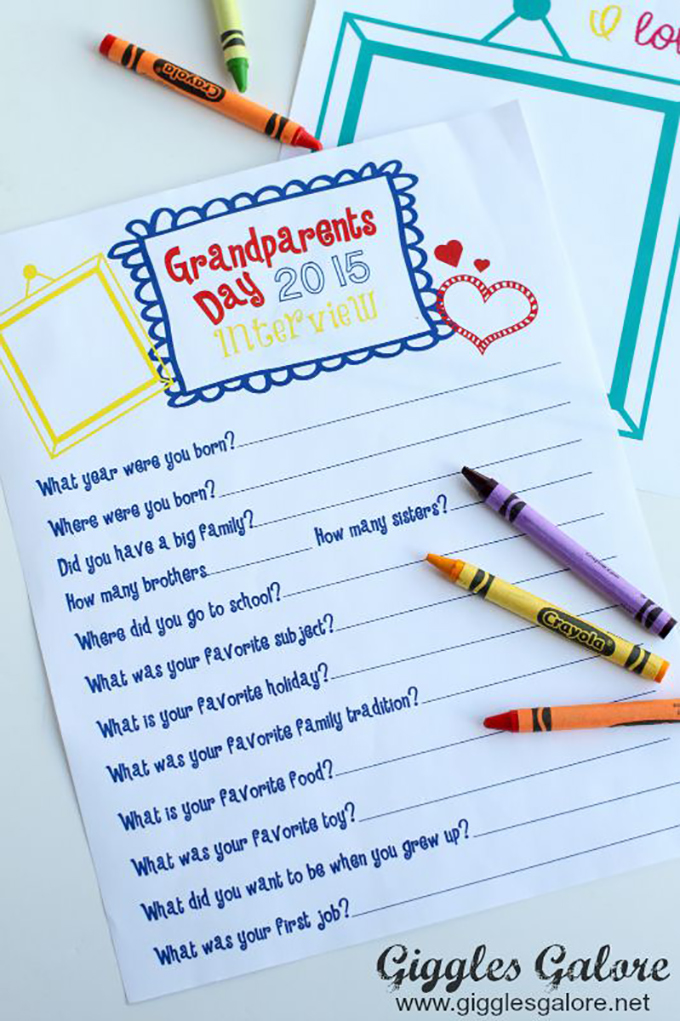 Crayola
I lo
Grandparents
Day 2015
Interview
What year were you born?
Where were you born?
Did you have a big family?
How many brothers How many sisters?
Where did you go to school?
What was your favorite subject?
What is your favorite holiday?
What was your favorite family tradition?
What is your favorite food?
What was your favorite toy?
What did you want to be when you grew up?
What was your first job?
Crayola
Giggles Galore
www.gigglesgalore.net